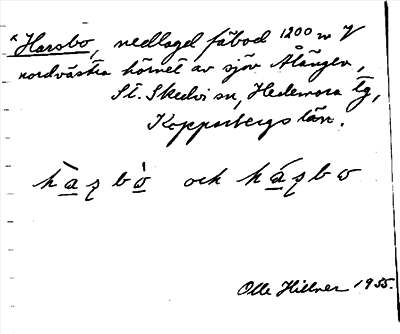 *Harsbo, nedlagd fäbod 1200 m V
nordvästra hörnet av sjön Ålången,
St. Skedvi sn, Hedemora tg,
Kopparbergs län.
hàʂbò och háʂbω
Olle Hillner 1955.